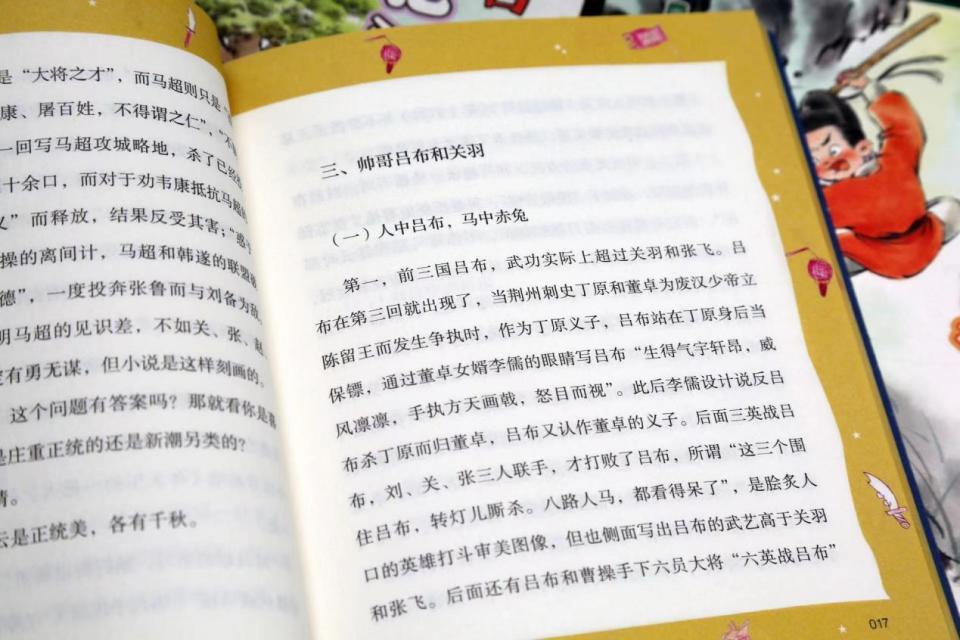 是“大将之才”，而马超则只是“
康、屠百姓，不得谓之仁”，“不
一回写马超攻城略地，杀了已经
十余口，而对于劝韦康抵抗马超的
义”而释放，结果反受其害；“
操的离间计，马超和韩遂的联盟
德”，一度投奔张鲁而与刘备为敌
明马超的见识差，不如关、张、赵
有勇无谋，但小说是这样刻画的。
这个问题有答案吗？那就看你是喜
是庄重正统的还是新潮另类的？
情。
云是正统美，各有千秋。
三、帅哥吕布和关羽
（一）人中吕布，马中赤兔
第一，前三国吕布，武功实际上超过关羽和张飞。吕
布在第三回就出现了，当荆州刺史丁原和董卓为废汉少帝立
陈留王而发生争执时，作为丁原义子，吕布站在丁原身后当
保镖，通过董卓女婿李儒的眼睛写吕布“生得气宇轩昂，威
风凛凛，手执方天画戟，怒目而视”。此后李儒设计说反吕
布杀丁原而归董卓，吕布又认作董卓的义子。后面三英战吕
布，刘、关、张三人联手，才打败了吕布，所谓“这三个围
住吕布，转灯儿厮杀。八路人马，都看得呆了”，是脍炙人
口的英雄打斗审美图像，但也侧面写出吕布的武艺高于关羽
和张飞。后面还有吕布和曹操手下六员大将“六英战吕布”
017